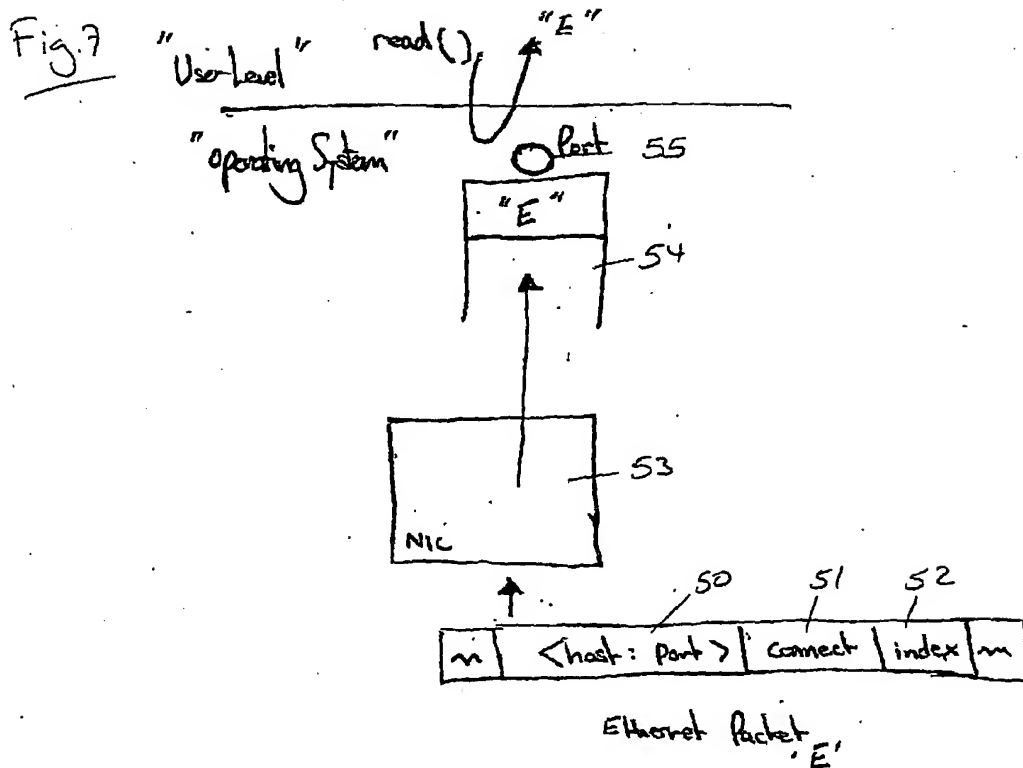 Fig.7
"User-Level"
read()
"E"
"Operating System"
Port 55
"E"
54
53
NIC
50 51 52
<host: port> connect index
Ethernet Packet
'E'